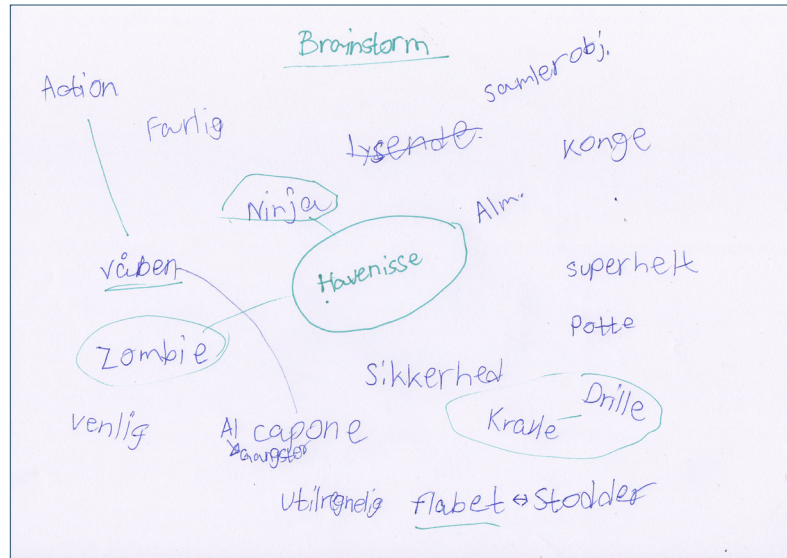 Brainstorm
Action
Farlig
samlerobj.
lysende.
Konge
Ninja
Alm.
Havenisse
våben
superhelt
Potte
Zombie
Sikkerhed
Drille
Kralle
venlig
Al capone
Gangster
Utilrgnelig flabet ⇔ Stodder